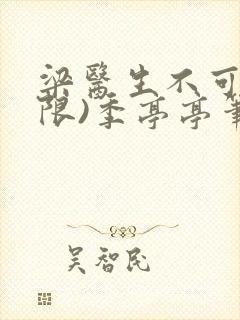 梁醫生不可
限)季亭亭筆
吳智民